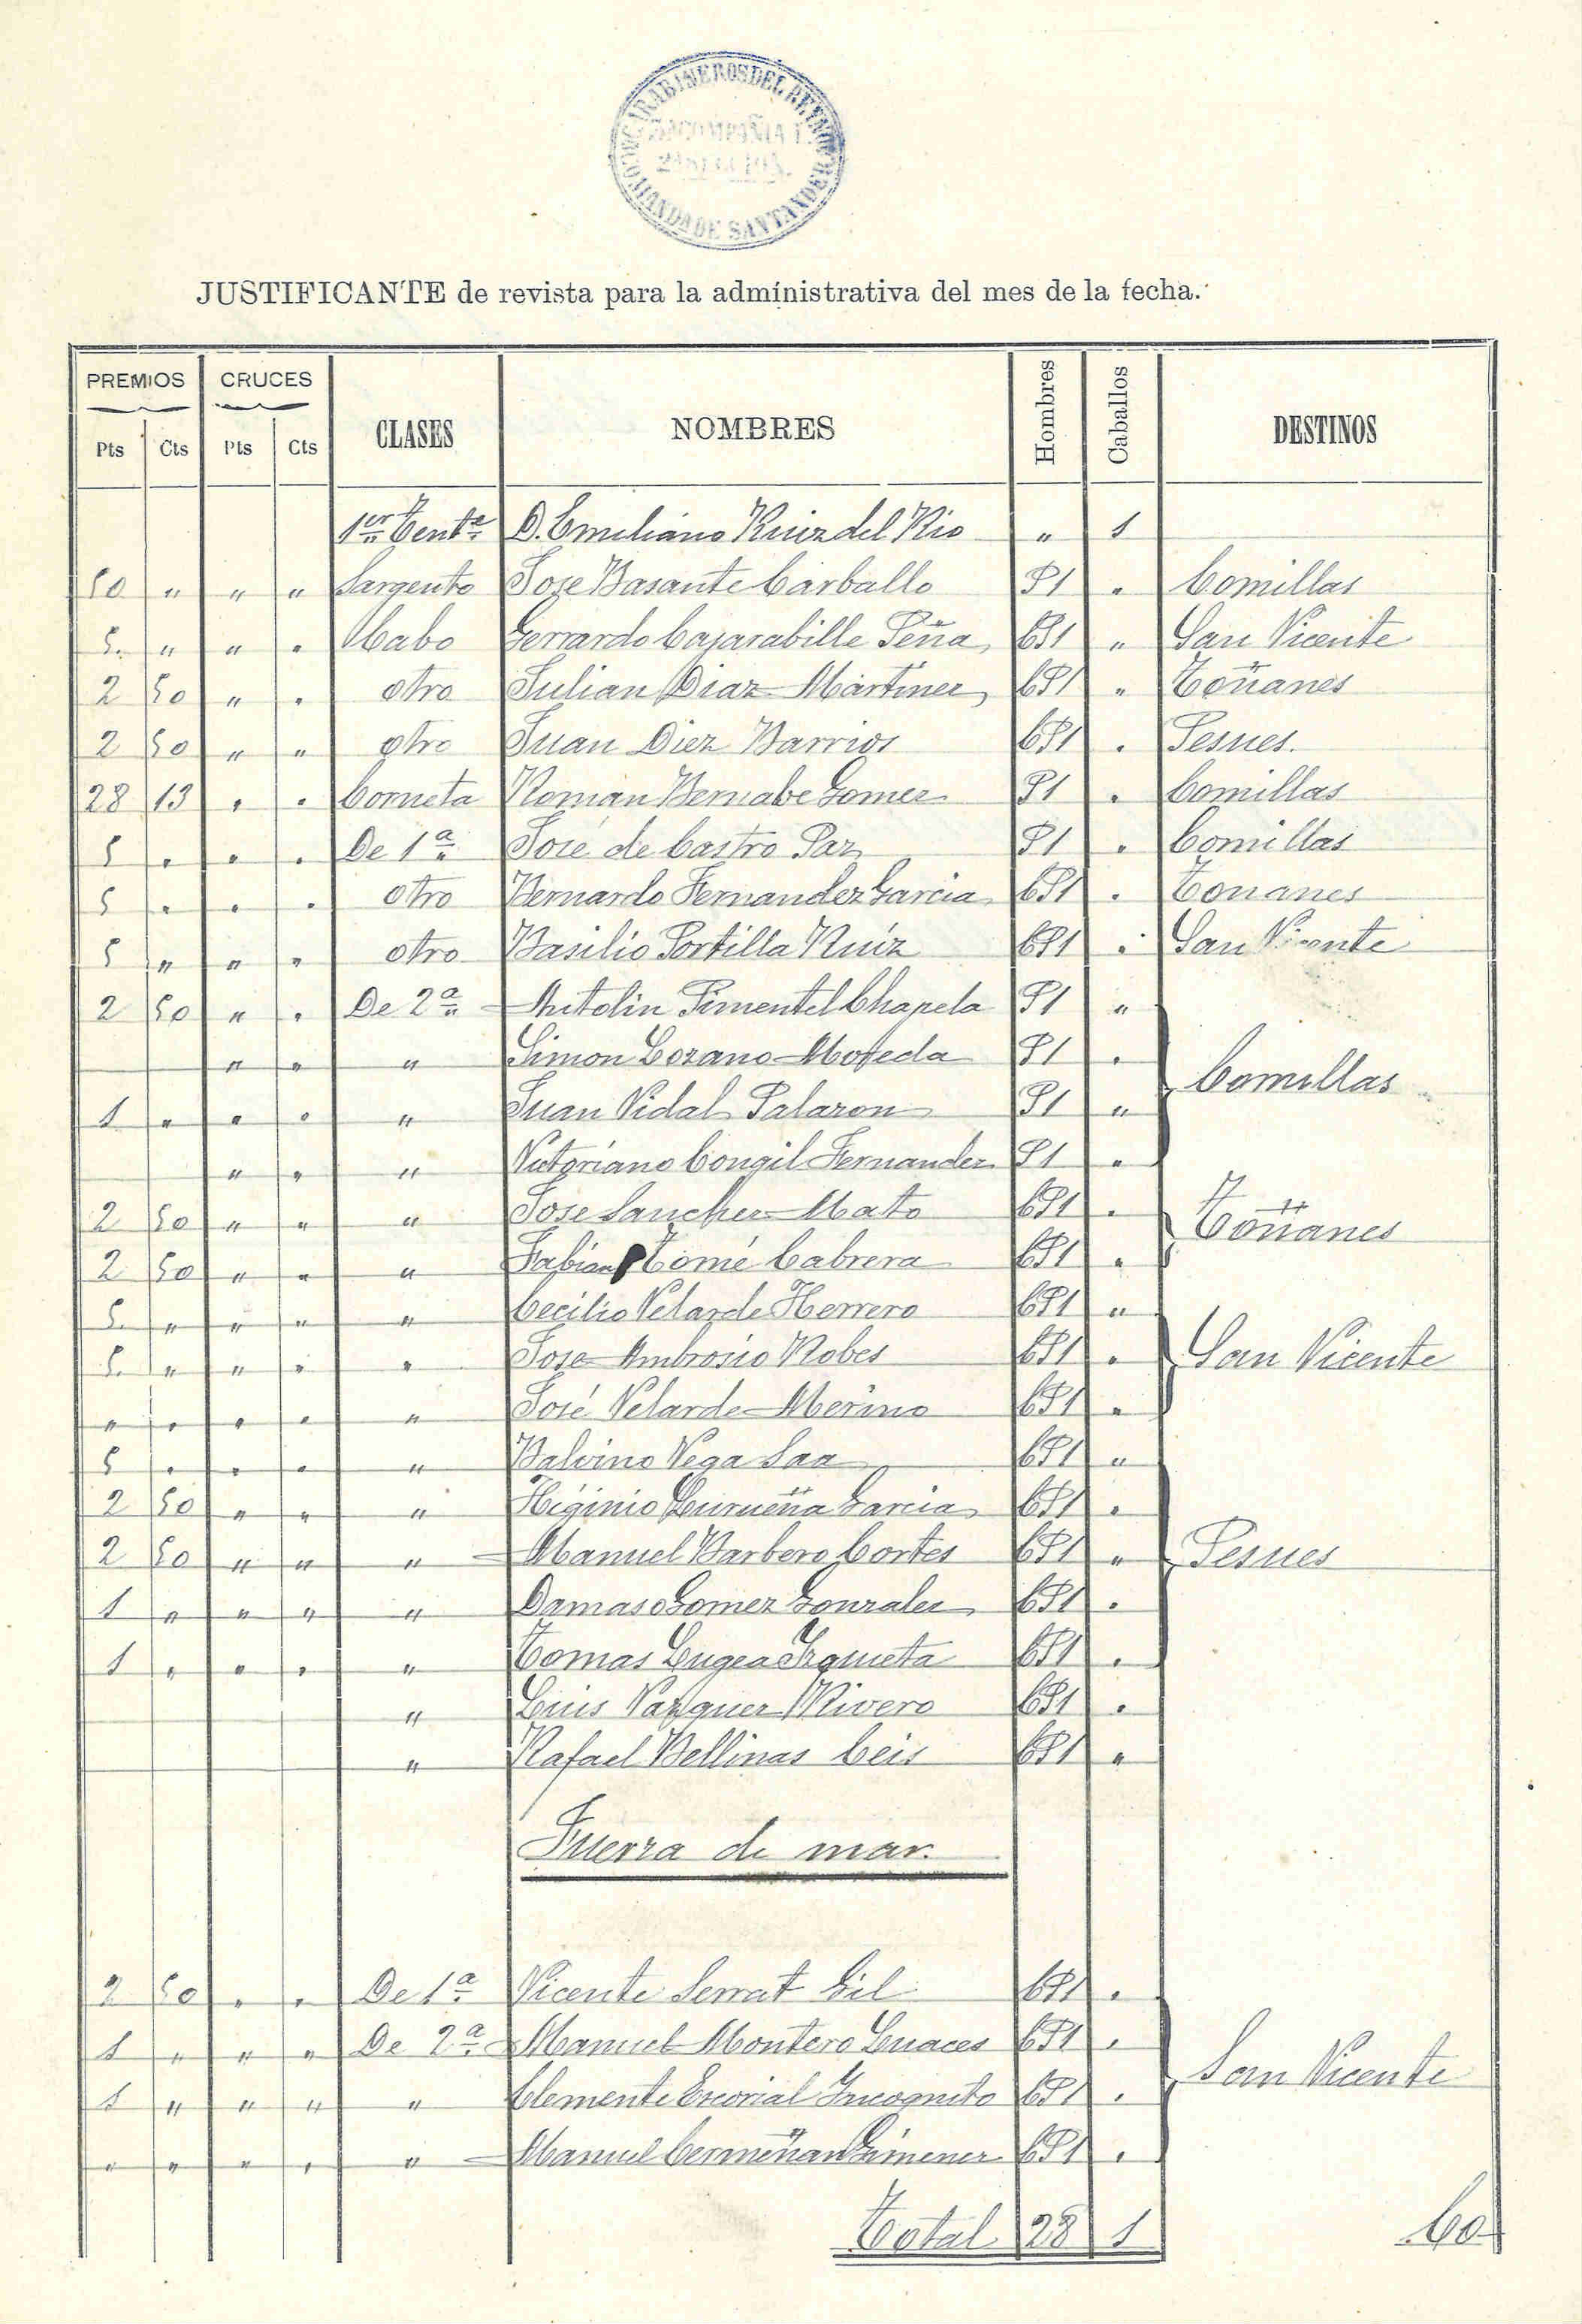 CARABINEROS DEL REINO
COMANDA DE SANTANDER
JUSTIFICANTE de revista para la administrativa del mes de la fecha.
PREMIOS CRUCES CLASES NOMBRES Hombres Caballos DESTINOS
Pts Cts Pts Cts
1er Tente D. Emiliano Ruiz del Rio " 1
50 " " " Sargento Jose Basante Carballo P1 " Comillas
5. " " " Cabo Gerrardo Cajarabille Peña CP1 " San Vicente
2 50 " " otro Julian Diaz Martinez CP1 " Toñanes
2 50 " " otro Juan Diez Barrios CP1 " Pesues.
28 13 " " Corneta Roman Bernabe Gomez P1 " Comillas
5 " " " De 1ª José de Castro Paz P1 " Comillas
5 " " " otro Bernardo Fernandez Garcia CP1 " Tonanes
5 " " " otro Basilio Portilla Ruiz CP1 " San Vicente
2 50 " " De 2ª Antolin Pimentel Chapela P1 "
" " " Simon Lozano Moreda P1 "
Comillas
1 " " " " Juan Vidal Palaron P1 "
" " " Victoriano Congil Fernandez P1 "
2 50 " " " Jose Sanchez Mato CP1 "
Toñanes
2 50 " " " Fabian Tomé Cabrera CP1 "
5. " " " " Cecilio Velarde Herrero CP1 "
5. " " " " Jose Ambrosio Robes CP1 " San Vicente
" " " " " José Velarde Merino CP1 "
5 " " " " Balvino Vega Saa CP1 "
2 50 " " " Higinio Lurueña Garcia CP1 "
2 50 " " " Manuel Barbero Cortes CP1 " Pesues
1 " " " " Damaso Gomez Gonzalez CP1 "
1 " " " " Tomas Lugea Izqueta CP1 "
" Luis Vazquez Rivero CP1 "
" Rafael Bellinas Ceis CP1 "
Fuerza de mar.
2 50 " " De 1ª Vicente Serrat Gil CP1 "
1 " " " De 2ª Manuel Montero Luaces CP1 "
San Vicente
1 " " " " Clemente Escorial Incognito CP1 "
" " " " " Manuel Cermeñan Gimenez CP1 "
Total 28 1 Co